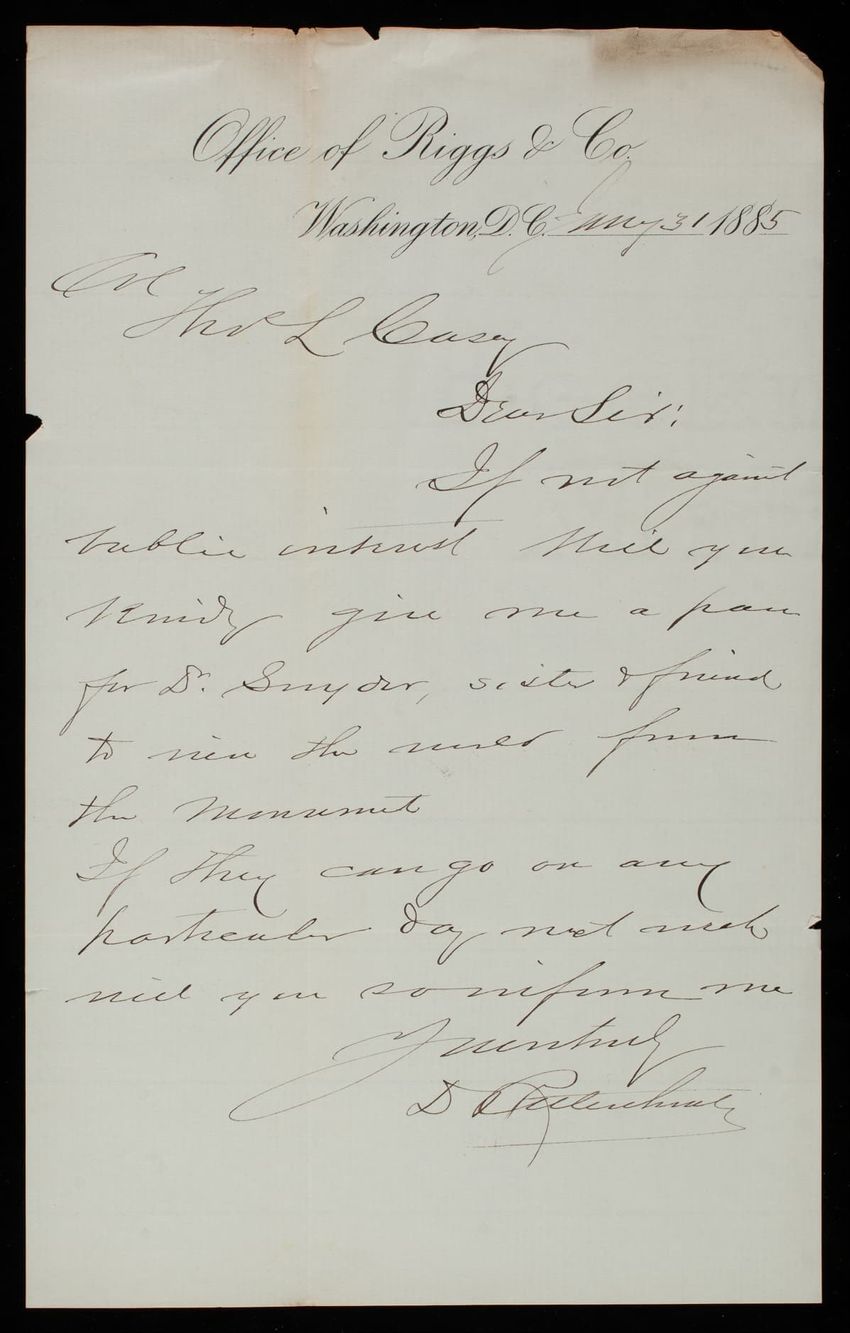 Office of Riggs & Co.
Washington, D.C. Jany 31 1885
Col
Thos L Casey
Dear Sir:
If not against
public interest will you
kindly give me a pass
for Dr. Snyder, sister & friend
to view the world from
the Monument
If they can go on any
particular day next week
will you so inform me
Yours truly
D